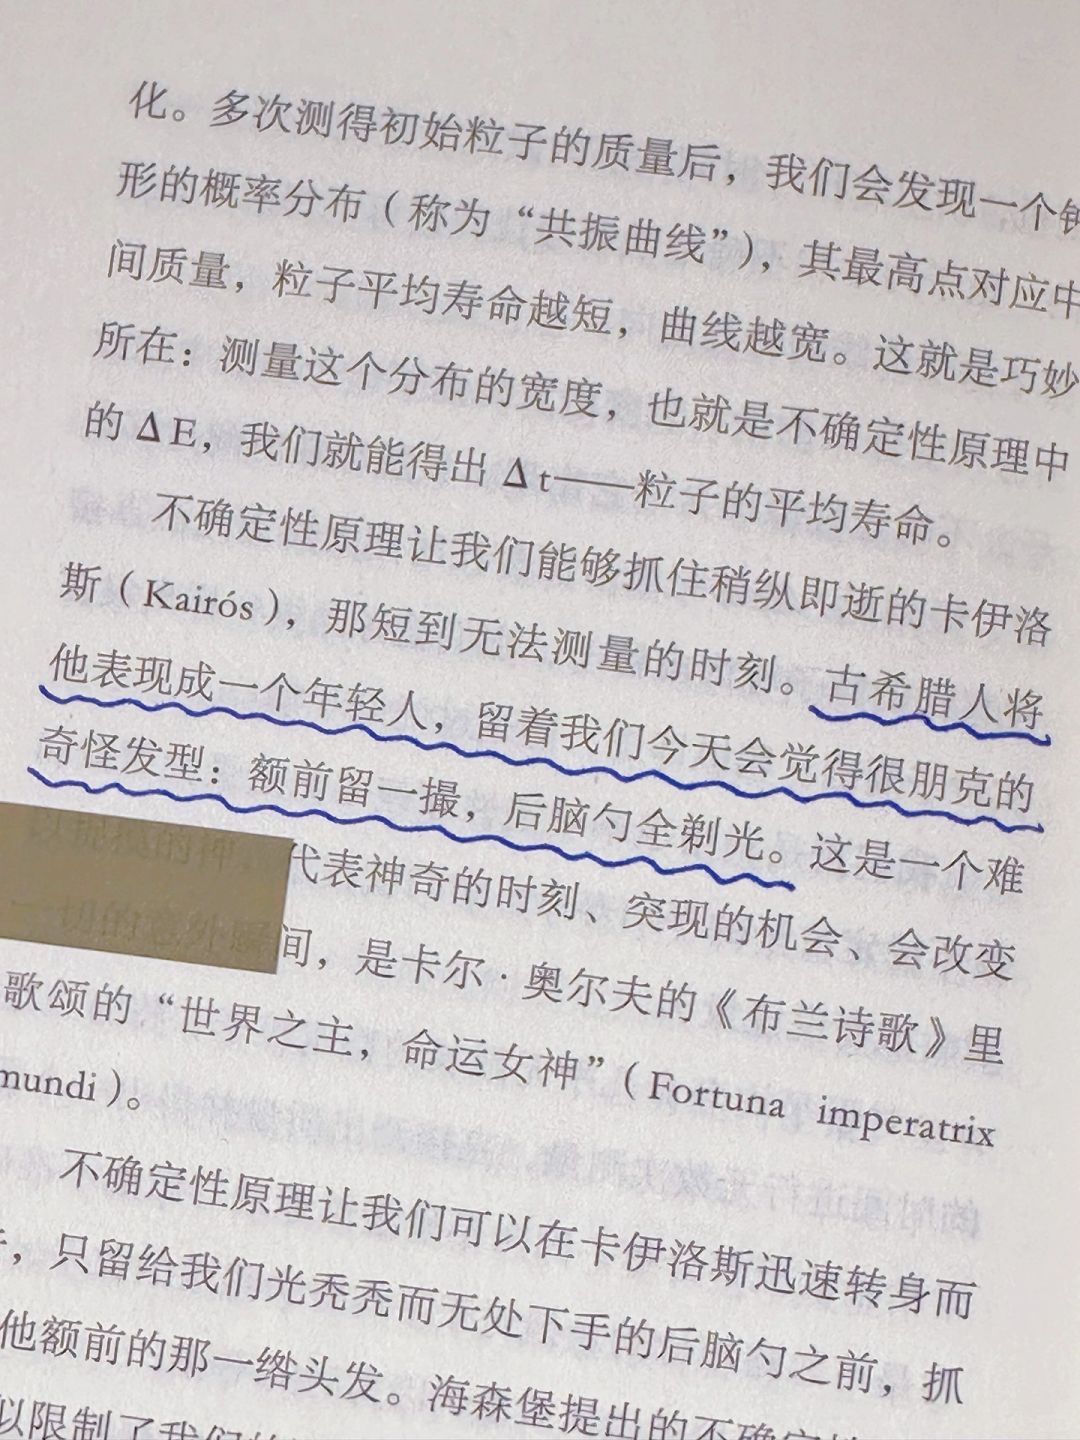 化。多次测得初始粒子的质量后，我们会发现一个钟
形的概率分布（称为“共振曲线”），其最高点对应中
间质量，粒子平均寿命越短，曲线越宽。这就是巧妙
所在：测量这个分布的宽度，也就是不确定性原理中
的 ΔE，我们就能得出 Δt——粒子的平均寿命。
不确定性原理让我们能够抓住稍纵即逝的卡伊洛
斯（Kairós），那短到无法测量的时刻。古希腊人将
他表现成一个年轻人，留着我们今天会觉得很朋克的
奇怪发型：额前留一撮，后脑勺全剃光。这是一个难
代表神奇的时刻、突现的机会、会改变
间，是卡尔·奥尔夫的《布兰诗歌》里
歌颂的“世界之主，命运女神”（Fortuna imperatrix
mundi）。
不确定性原理让我们可以在卡伊洛斯迅速转身而
，只留给我们光秃秃而无处下手的后脑勺之前，抓
他额前的那一绺头发。海森堡提出的不确定性
以限制了我们的